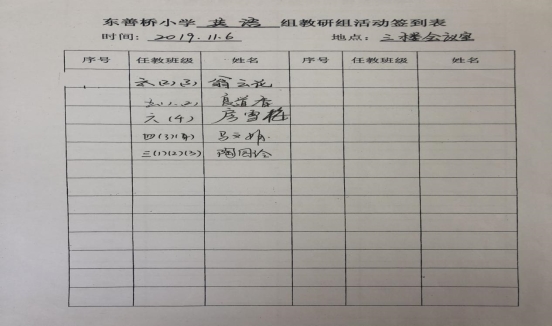 东善桥小学 英语 组教研组活动签到表
时间: 2019.11.6 地点: 三楼会议室
序号 任教班级 姓名 序号 任教班级 姓名
六(2)(3) 翁云花
五(1.2)
六(4) 房雪梅
四(3)(4) 马文娟
三(1)(2)(3) 陶园玲